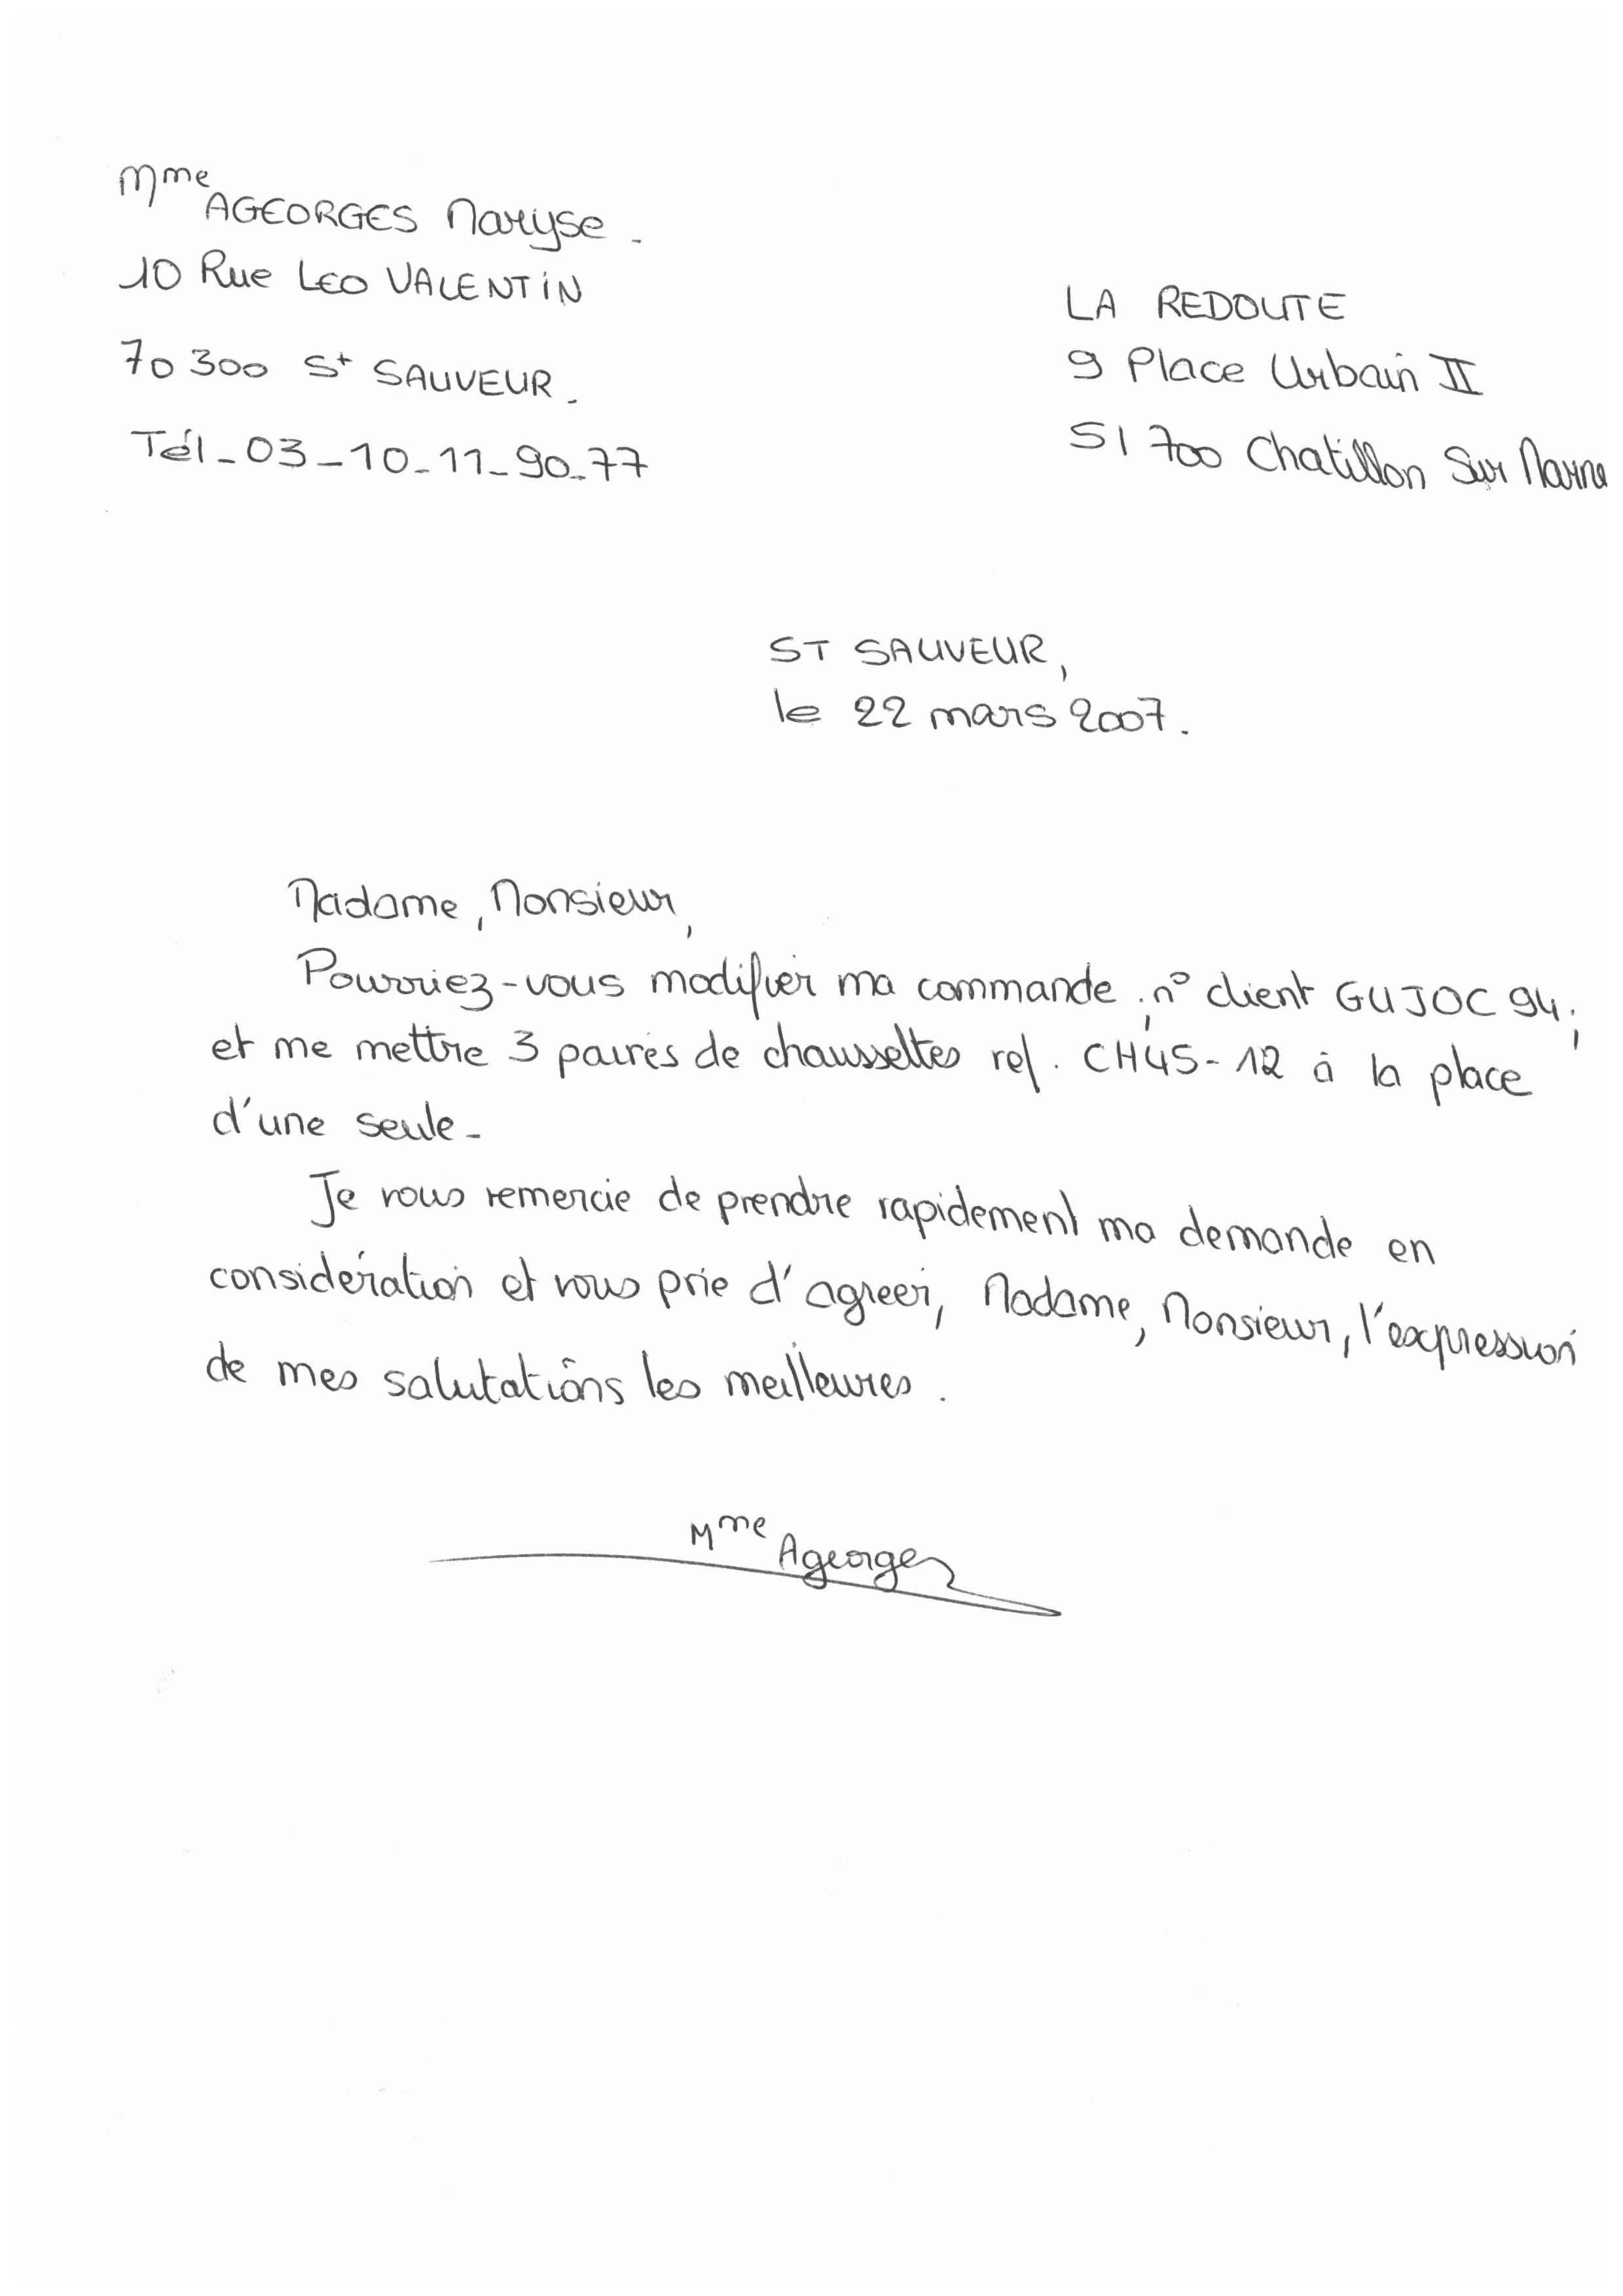 Mme AGEORGES Maryse.
10 Rue LEO VALENTIN
70300 St SAUVEUR.
Tél-03-10-11-90-77
LA REDOUTE
9 Place Urbain II
51700 Chatillon Sur Marne
ST SAUVEUR,
le 22 mars 2007.
Madame, Monsieur,
Pourriez-vous modifier ma commande ; n° client GUJOC 94;
et me mettre 3 paires de chaussettes ref. CH45-12 à la place
d'une seule-
Je vous remercie de prendre rapidement ma demande en
considération et vous prie d'agreer, Madame, Monsieur, l'expression
de mes salutations les meilleures.
Mme Ageorges